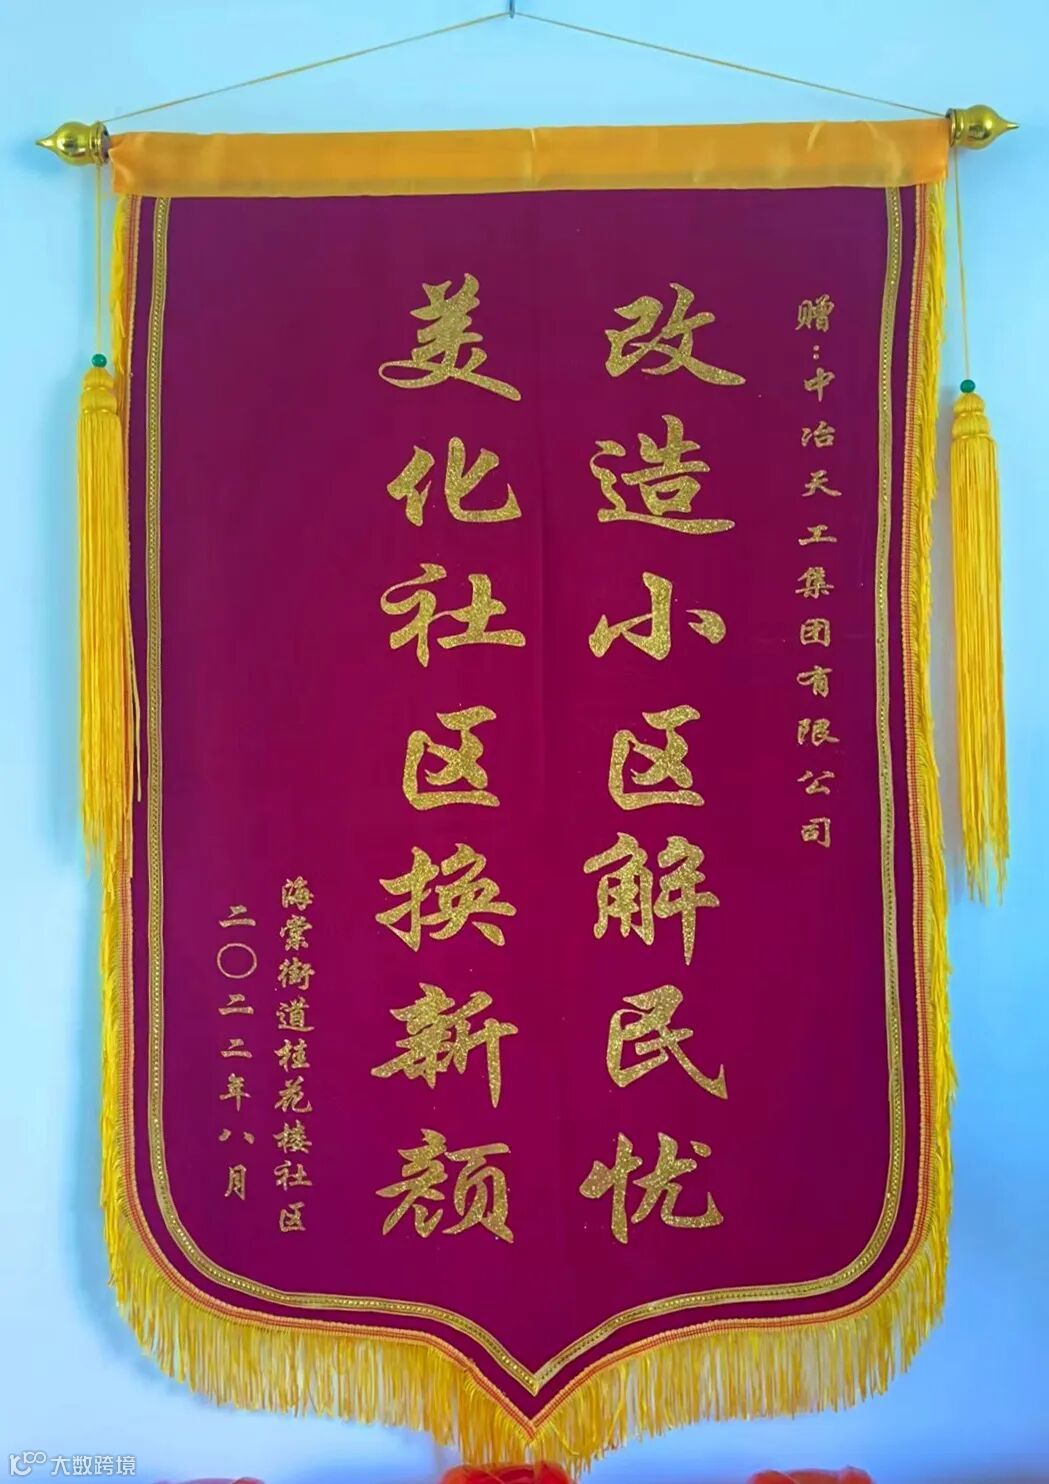 赠：中冶天工集团有限公司
改造小区解民忧
美化社区换新颜
海棠街道桂花楼社区
二〇二二年八月
大数跨境